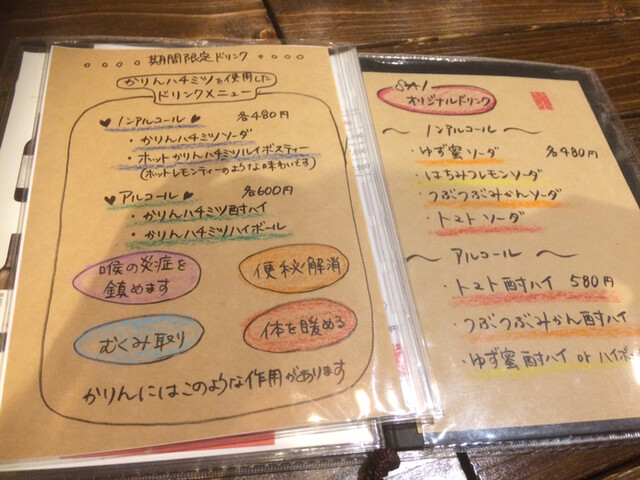 期間限定ドリンク
かりんハチミツを使用した
ドリンクメニュー
ノンアルコール 各480円
・かりんハチミツソーダ
・ホットかりんハチミツルイボスティー
(ホットレモンティーのような味わいです)
アルコール 各600円
・かりんハチミツ酎ハイ
・かりんハチミツハイボール
喉の炎症を
鎮めます
便秘解消
むくみ取り
体を暖める
かりんにはこのような作用があります
オリジナルドリンク
〜ノンアルコール〜
・ゆず蜜ソーダ 各480円
・はちみつレモンソーダ
・つぶつぶみかんソーダ
・トマトソーダ
〜アルコール〜
・トマト酎ハイ 580円
・つぶつぶみかん酎ハイ
・ゆず蜜酎ハイ or ハイボー